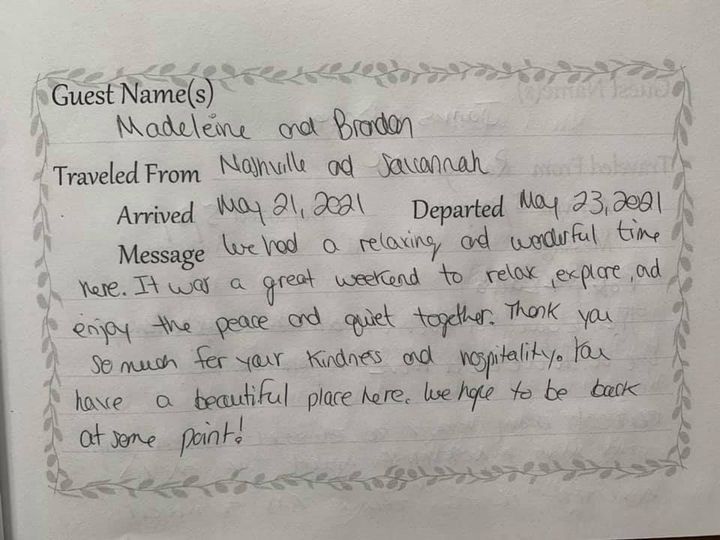 Guest Name(s)
Madeleine and Brandon
Traveled From Nashville and Savannah
Arrived May 21, 2021 Departed May 23, 2021
Message We had a relaxing and wonderful time
here. It was a great weekend to relax, explore, and
enjoy the peace and quiet together. Thank you
so much for your kindness and hospitality. You
have a beautiful place here. We hope to be back
at some point!